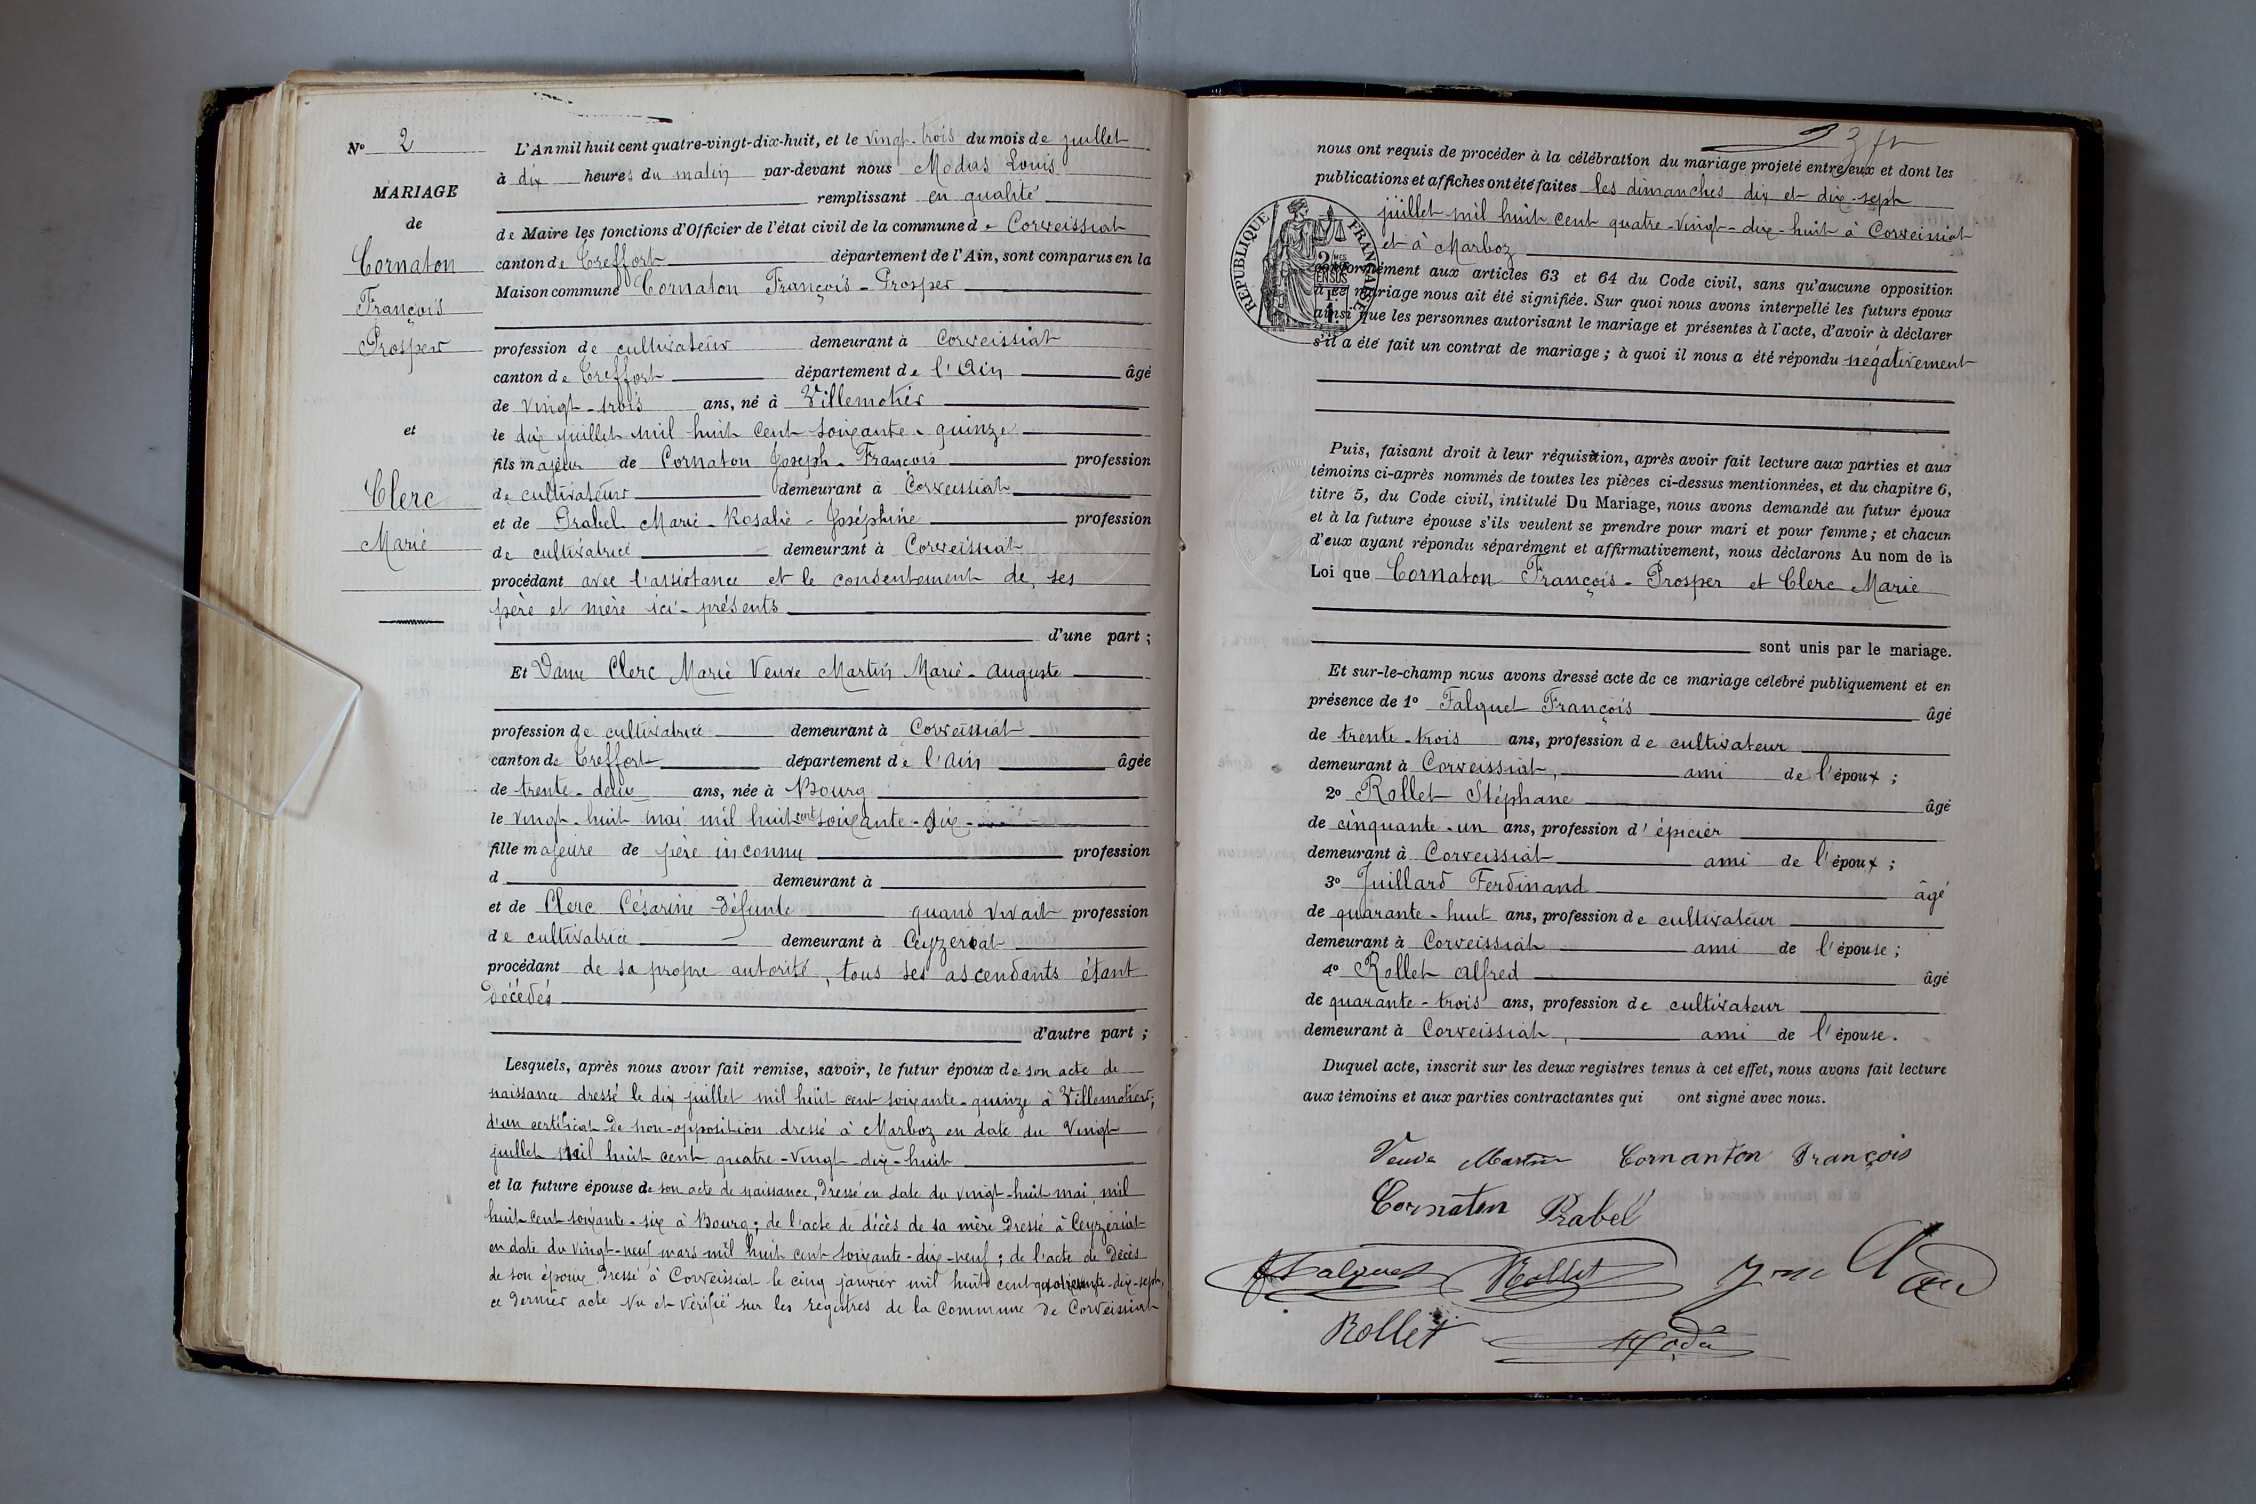 Nº 2
MARIAGE
de
Cornaton
François
Prosper
et
Clerc
Marie
L'An mil huit cent quatre-vingt-dix-huit, et le vingt-trois du mois de juillet
à dix heures du matin par-devant nous Modas Louis
remplissant en qualité
de Maire les fonctions d'Officier de l'état civil de la commune de Corveissiat
canton de Treffort département de l'Ain, sont comparus en la
Maison commune Cornaton François-Prosper
profession de cultivateur demeurant à Corveissiat
canton de Treffort département de l'Ain âgé
de vingt-trois ans, né à Villemotier
le dix juillet mil huit cent soixante-quinze
fils majeur de Cornaton Joseph-François profession
de cultivateur demeurant à Corveissiat
et de Prabel Marie-Rosalie-Joséphine profession
de cultivatrice demeurant à Corveissiat
procédant avec l'assistance et le consentement de ses
père et mère ici-présents
d'une part ;
Et Dame Clerc Marie Veuve Martin Marie-Auguste
profession de cultivatrice demeurant à Corveissiat
canton de Treffort département de l'Ain âgée
de trente-deux ans, née à Bourg
le vingt-huit mai mil huit cent soixante-six
fille majeure de père inconnu profession
d demeurant à
et de Clerc Césarine Défunte quand vivait profession
de cultivatrice demeurant à Ceyzériat
procédant de sa propre autorité, tous ses ascendants étant
décédés
d'autre part ;
Lesquels, après nous avoir fait remise, savoir, le futur époux de son acte de
naissance dressé le dix juillet mil huit cent soixante-quinze à Villemotier ;
d'un certificat de non-opposition dressé à Marboz en date du vingt
juillet mil huit cent quatre-vingt-dix-huit
et la future épouse de son acte de naissance, dressé en date du vingt-huit mai mil
huit cent soixante-six à Bourg ; de l'acte de décès de sa mère dressé à Ceyzériat
en date du vingt-neuf mars mil huit cent soixante-dix-neuf ; de l'acte de décès
de son époux dressé à Corveissiat le cinq janvier mil huit cent quatre-vingt-dix-sept,
ce dernier acte vu et vérifié sur les registres de la Commune de Corveissiat
nous ont requis de procéder à la célébration du mariage projeté entre eux et dont les
publications et affiches ont été faites les dimanches dix et dix-sept
juillet mil huit cent quatre-vingt-dix-huit à Corveissiat
et à Marboz
RÉPUBLIQUE FRANÇAISE
conformément aux articles 63 et 64 du Code civil, sans qu'aucune opposition
à ce mariage nous ait été signifiée. Sur quoi nous avons interpellé les futurs époux
ainsi que les personnes autorisant le mariage et présentes à l'acte, d'avoir à déclarer
s'il a été fait un contrat de mariage ; à quoi il nous a été répondu négativement
Puis, faisant droit à leur réquisition, après avoir fait lecture aux parties et aux
témoins ci-après nommés de toutes les pièces ci-dessus mentionnées, et du chapitre 6,
titre 5, du Code civil, intitulé Du Mariage, nous avons demandé au futur époux
et à la future épouse s'ils veulent se prendre pour mari et pour femme ; et chacun
d'eux ayant répondu séparément et affirmativement, nous déclarons Au nom de la
Loi que Cornaton François-Prosper et Clerc Marie
sont unis par le mariage.
Et sur-le-champ nous avons dressé acte de ce mariage célébré publiquement et en
présence de 1º Falquet François âgé
de trente-trois ans, profession de cultivateur
demeurant à Corveissiat, ami de l'époux ;
2º Rollet Stéphane âgé
de cinquante-un ans, profession d'épicier
demeurant à Corveissiat ami de l'époux ;
3º Juillard Ferdinand âgé
de quarante-huit ans, profession de cultivateur
demeurant à Corveissiat ami de l'épouse ;
4º Rollet Alfred âgé
de quarante-trois ans, profession de cultivateur
demeurant à Corveissiat, ami de l'épouse.
Duquel acte, inscrit sur les deux registres tenus à cet effet, nous avons fait lecture
aux témoins et aux parties contractantes qui ont signé avec nous.
Veuve Martin Cornanton François
Cornaton Prabel
Falquet Rollet
Rollet